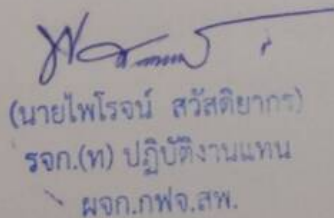 (นายไพโรจน์ สวัสดิยากร)
รจก.(ท) ปฏิบัติงานแทน
ผจก.กฟจ.สพ.